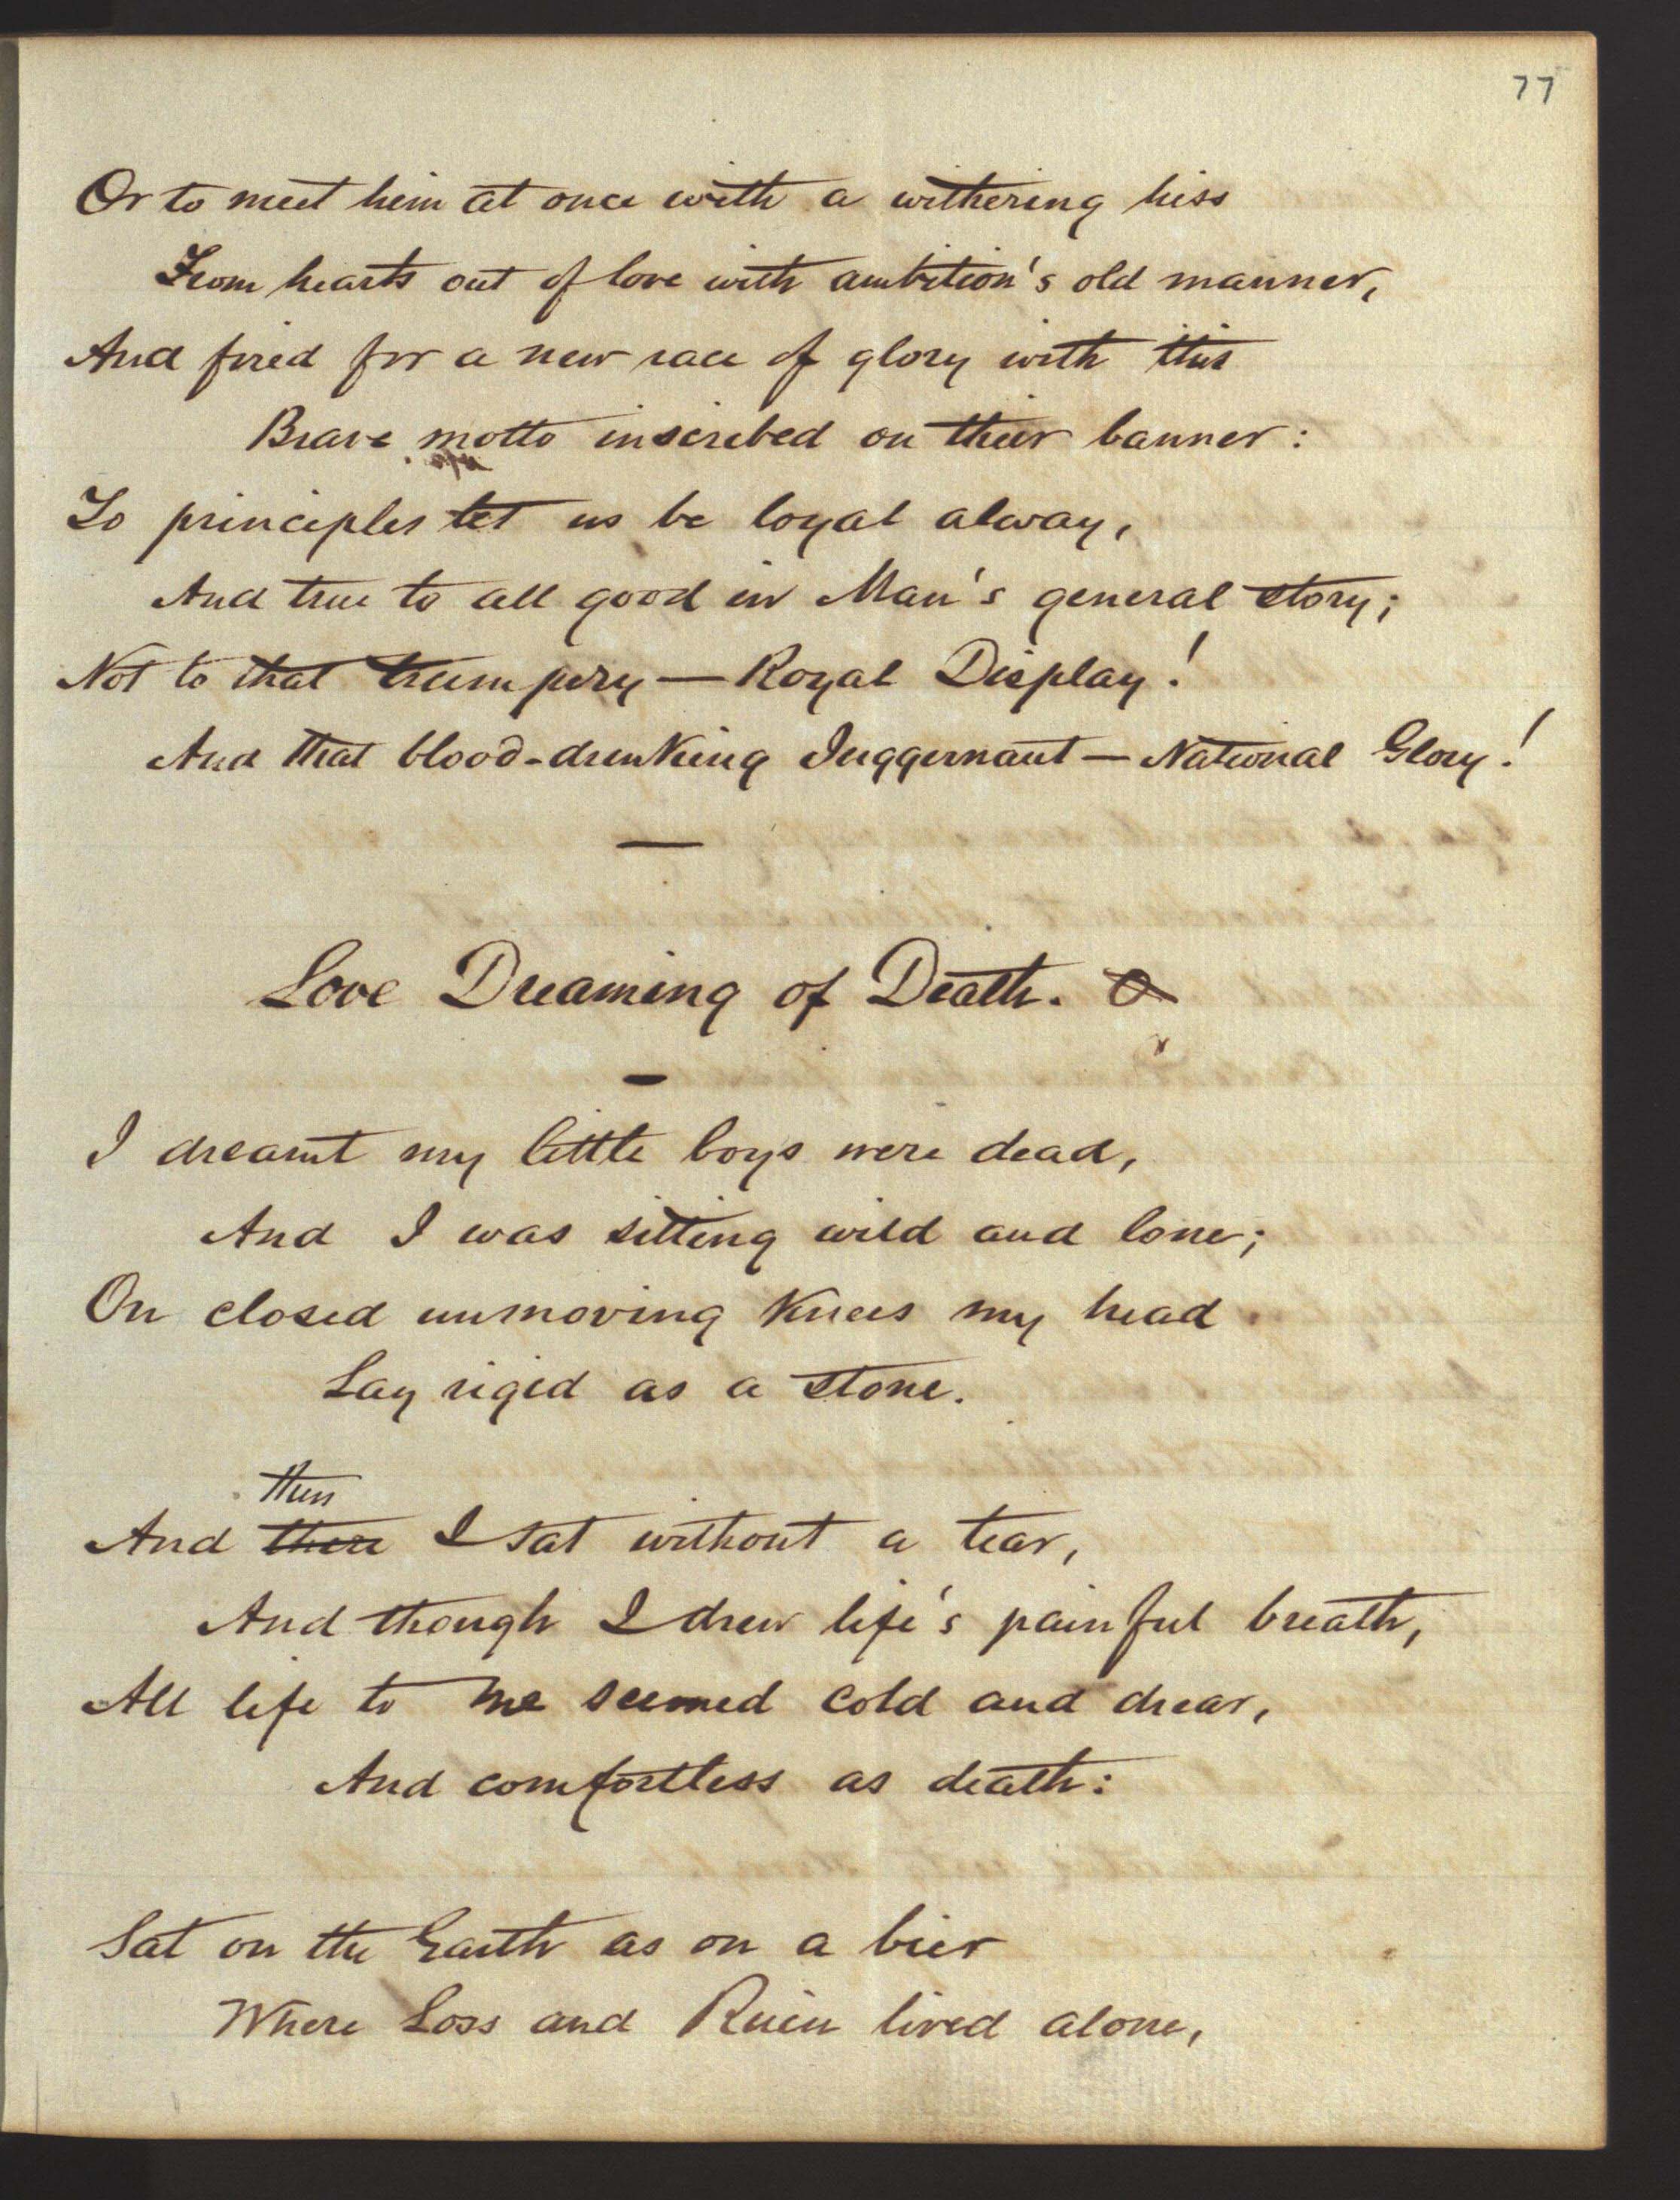 77
Or to meet him at once with a withering hiss
From hearts out of love with ambition's old manner,
And fired for a new race of glory with this
Brave motto inscribed on their banner:
To principles let us be loyal alway,
And true to all good in Man's general story;
Not to that trumpery — Royal Display!
And that blood-drinking Juggernaut — National Glory!
Love Dreaming of Death.
I dreamt my little boys were dead,
And I was sitting wild and lone;
On closed unmoving knees my head
Lay rigid as a stone.
then
And there I sat without a tear,
And though I drew life's painful breath,
All life to me seemed cold and drear,
And comfortless as death:
Sat on the Earth as on a bier
Where Loss and Ruin lived alone,